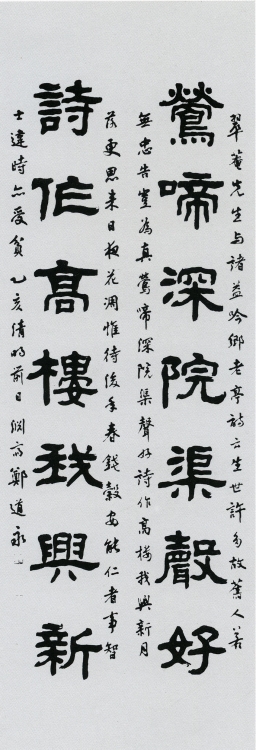 翠菴先生与諸益吟鄉老亭詩云生世許多故舊人若
鶯啼深院渠聲好
無忠告豈為真鶯啼深院渠聲好詩作高樓我興新月
落更思来日夜花凋惟待後年春錢穀安能仁者事智
詩作高樓我興新
士違時亦愛貧 乙亥清明前日 鄭道永